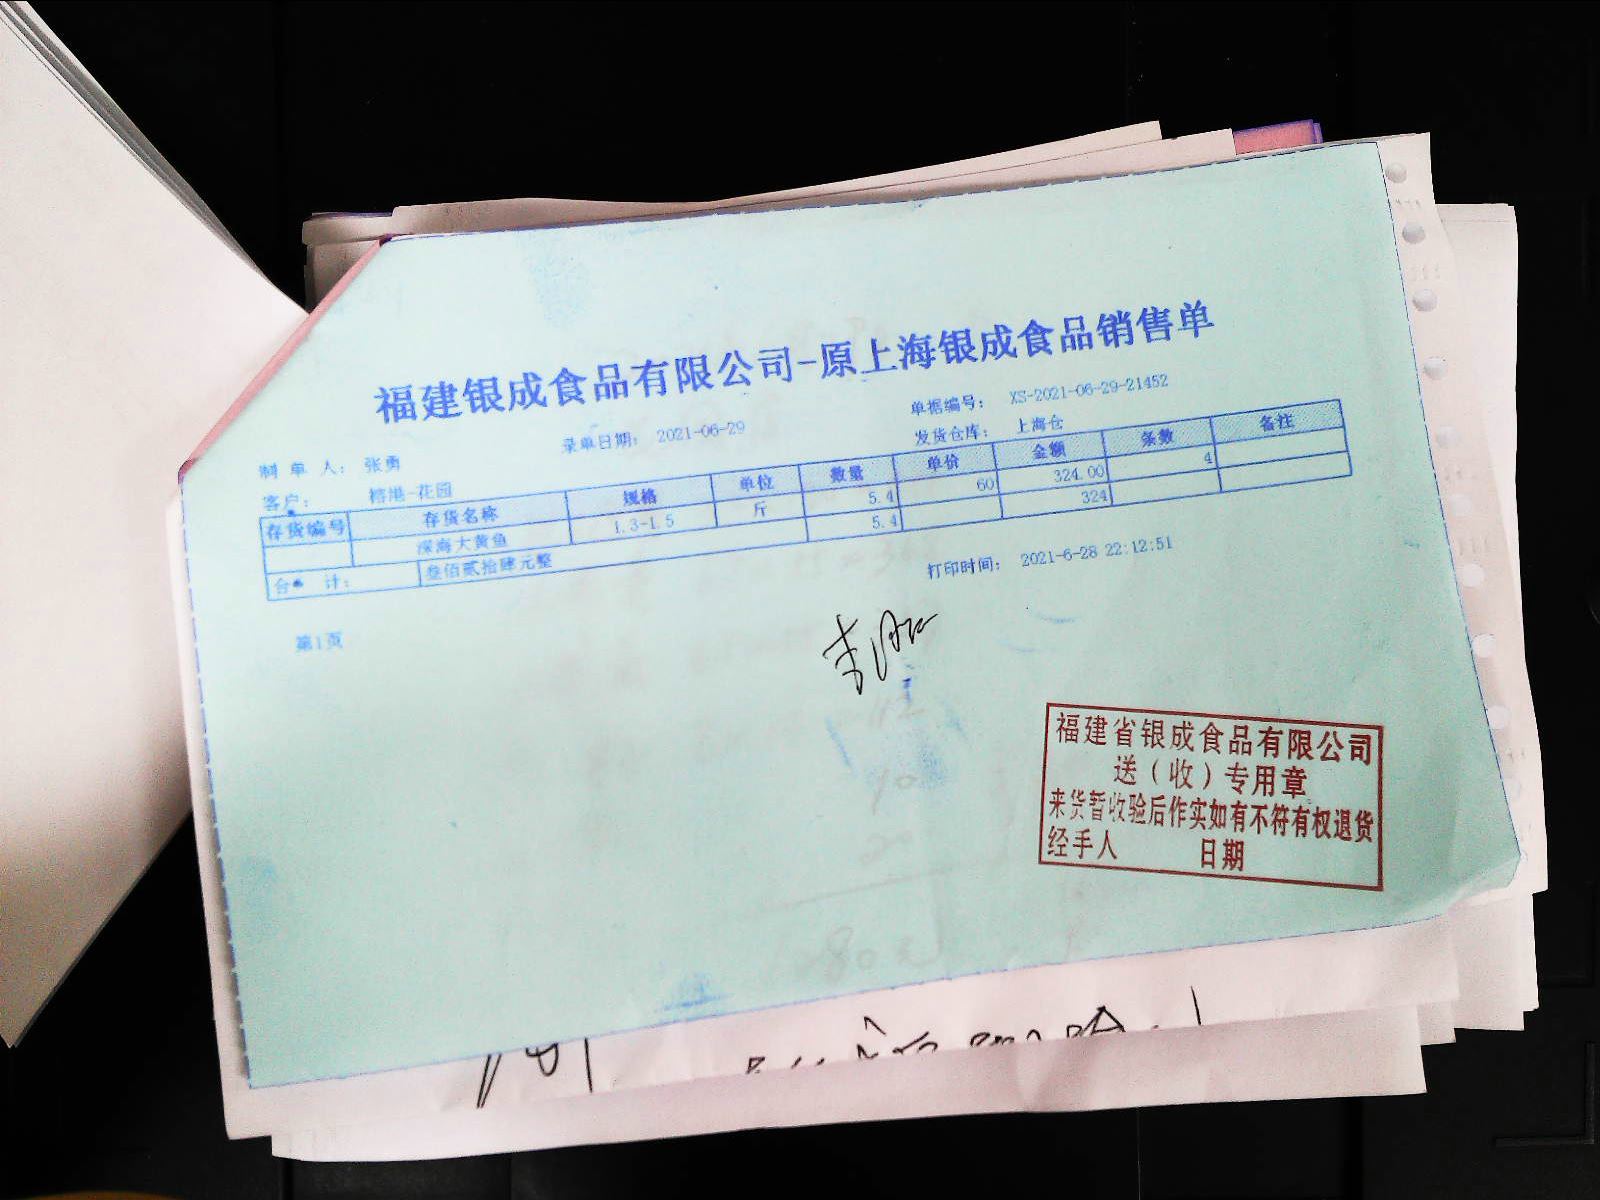 福建银成食品有限公司-原上海银成食品销售单
单据编号： XS-2021-06-29-21452
录单日期： 2021-06-29
发货仓库： 上海仓
制 单 人： 张勇
客户： 榕港-花园
存货编号 存货名称 规格 单位 数量 单价 金额 条数 备注
深海大黄鱼 1.3-1.5 斤 5.4 60 324.00 4
合 计： 叁佰贰拾肆元整 5.4 324
打印时间： 2021-6-28 22:12:51
第1页
福建省银成食品有限公司
送（收）专用章
来货暂收验后作实如有不符有权退货
经手人 日期